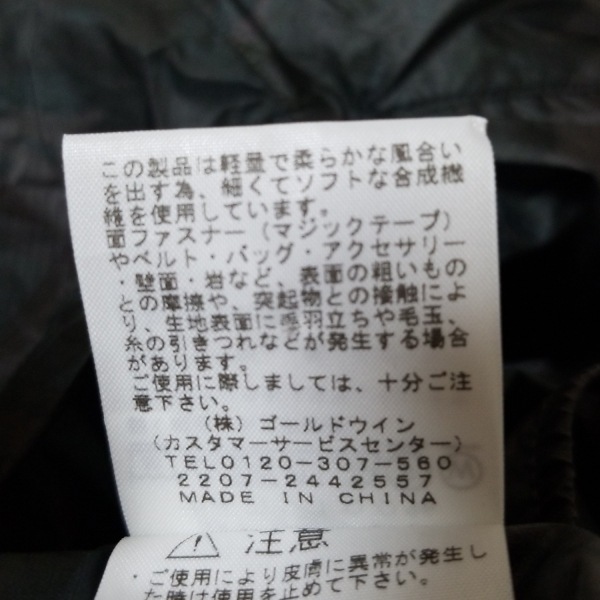 この製品は軽量で柔らかな風合い
を出す為、細くてソフトな合成繊
維を使用しています。
面ファスナー（マジックテープ）
やベルト・バッグ・アクセサリー
・壁面・岩など、表面の粗いもの
との摩擦や、突起物との接触によ
り、生地表面に毛羽立ちや毛玉、
糸の引きつれなどが発生する場合
があります。
ご使用に際しましては、十分ご注
意下さい。
（株）ゴールドウイン
（カスタマーサービスセンター）
TEL0120-307-560
2207-2442557
MADE IN CHINA
注意
・ご使用により皮膚に異常が発生し
た時は使用を止めて下さい。